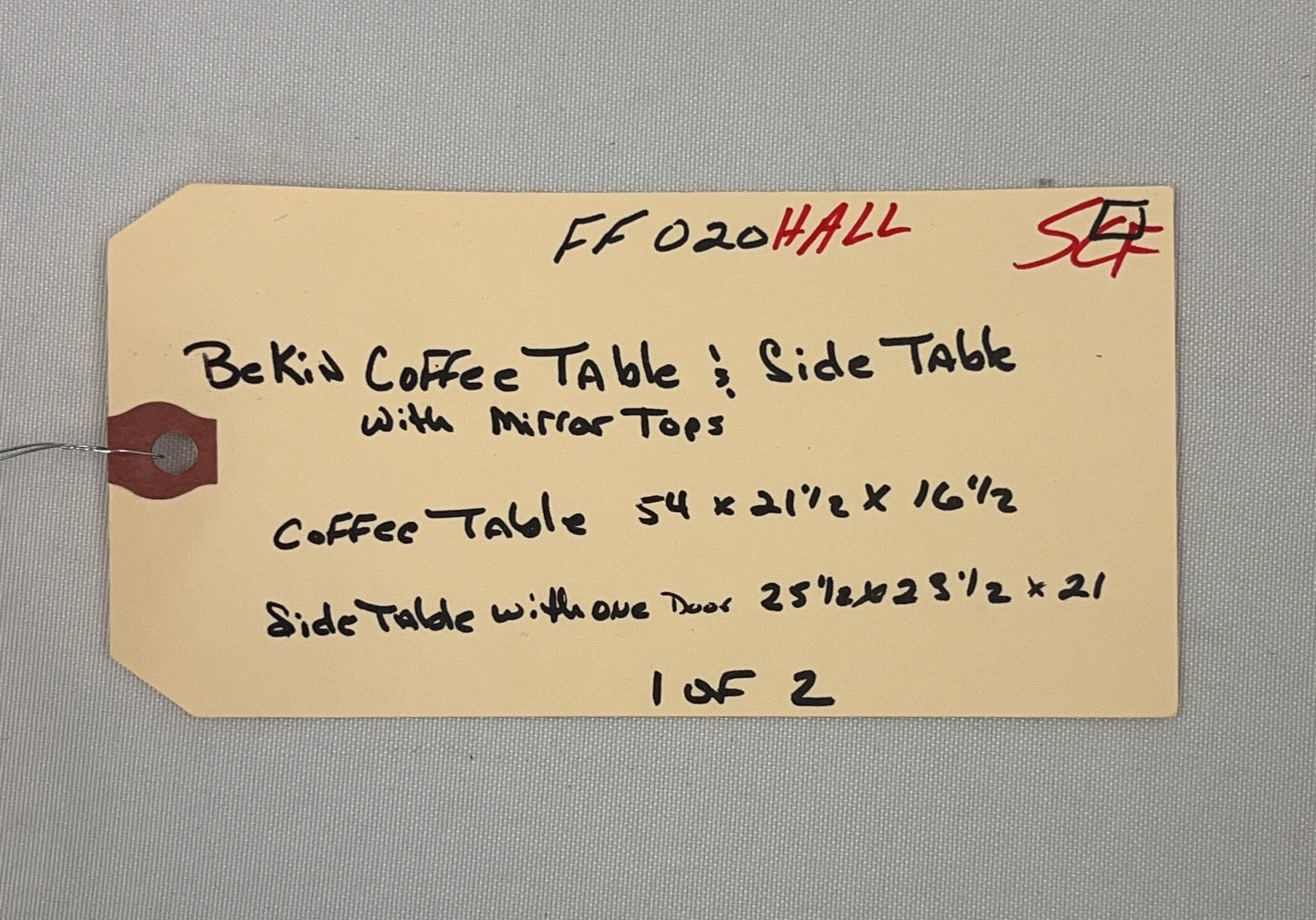 FF 020 HALL
BeKiN Coffee Table & Side Table
with Mirror Tops
Coffee Table 54 x 21 1/2 x 16 1/2
Side Table with one Door 25 1/2 x 23 1/2 x 21
1 OF 2